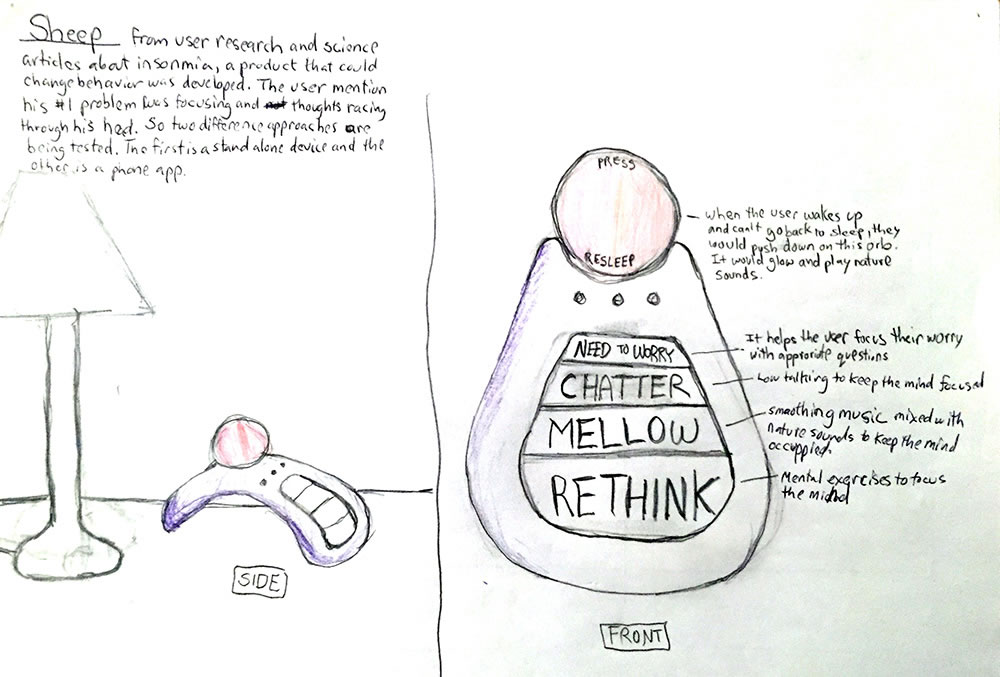 Sheep from user research and science
articles about insonmia, a product that could
change behavior was developed. The user mention
his #1 problem was focusing and thoughts racing
through his hed. So two difference approaches are
being tested. The first is a stand alone device and the
other is a phone app.
SIDE
PRESS
RESLEEP
when the user wakes up
and can't go back to sleep, they
would push down on this orb.
It would glow and play nature
sounds.
NEED TO WORRY
It helps the user focus their worry
with approriate questions
CHATTER
Low talking to keep the mind focused
MELLOW
smoothing music mixed with
nature sounds to keep the mind
occuppied.
RETHINK
Mental exercises to focus
the mind
FRONT